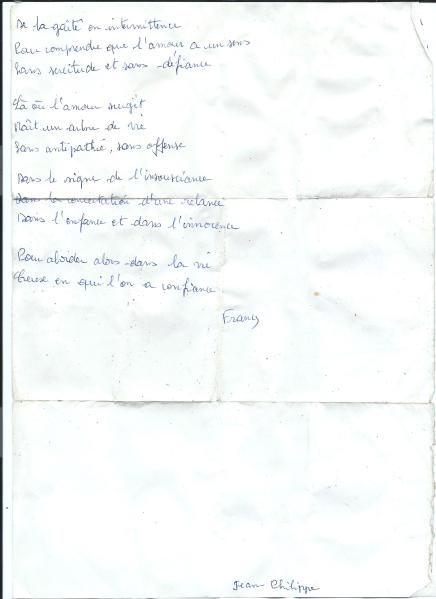 De la gaîté en intermittence
Pour comprendre que l'amour a un sens
Sans servitude et sans défiance
Là où l'amour surgit
Naît un arbre de vie
Sans antipathie, sans offense
Dans le signe de l'insouciance
Dans la concertation d'une relance
Dans l'enfance et dans l'innocence
Pour aborder alors dans la vie
en qui l'on a confiance
Francis
Jean Philippe